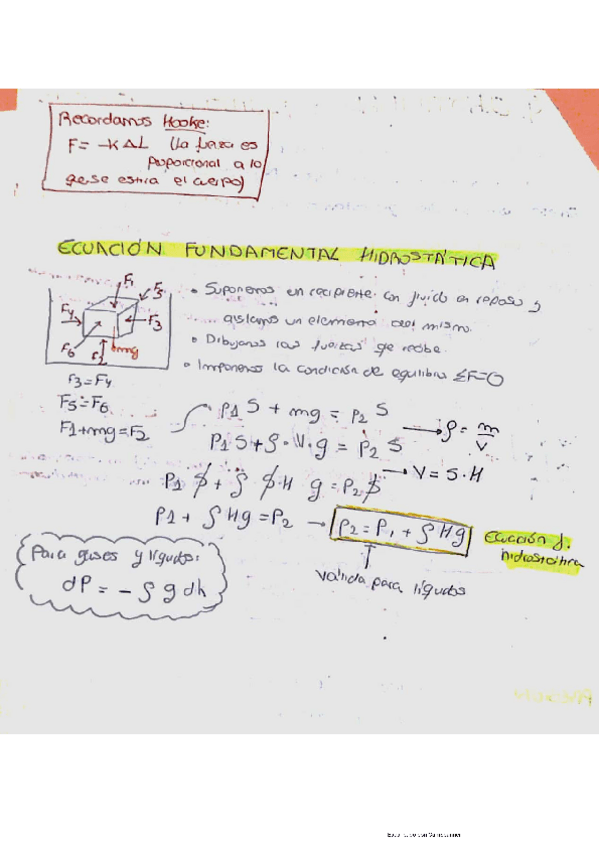 Recordamos Hooke:
F = -K ΔL (la fuerza es
proporcional a lo
qe se estira el cuerpo)
ECUACIÓN FUNDAMENTAL HIDROSTÁTICA
F1
F5
F4
F3
F6
F2
mg
• Suponemos un recipiente con fluido en reposo y
aislamos un elemento del mismo.
• Dibujamos las fuerzas qe recibe.
• Imponemos la condición de equilibrio ΣF=0
F3=F4
F5=F6
F1+mg=F2
P1 S + mg = P2 S
ρ = m/V
P1 S + ρ · V · g = P2 S
V = S · H
P1 S + ρ S · H g = P2 S
P1 + ρ H g = P2 → P2 = P1 + ρ H g
Ecuación f.
hidrostática
válida para líquidos
Para gases y líquidos:
dP = - ρ g dh